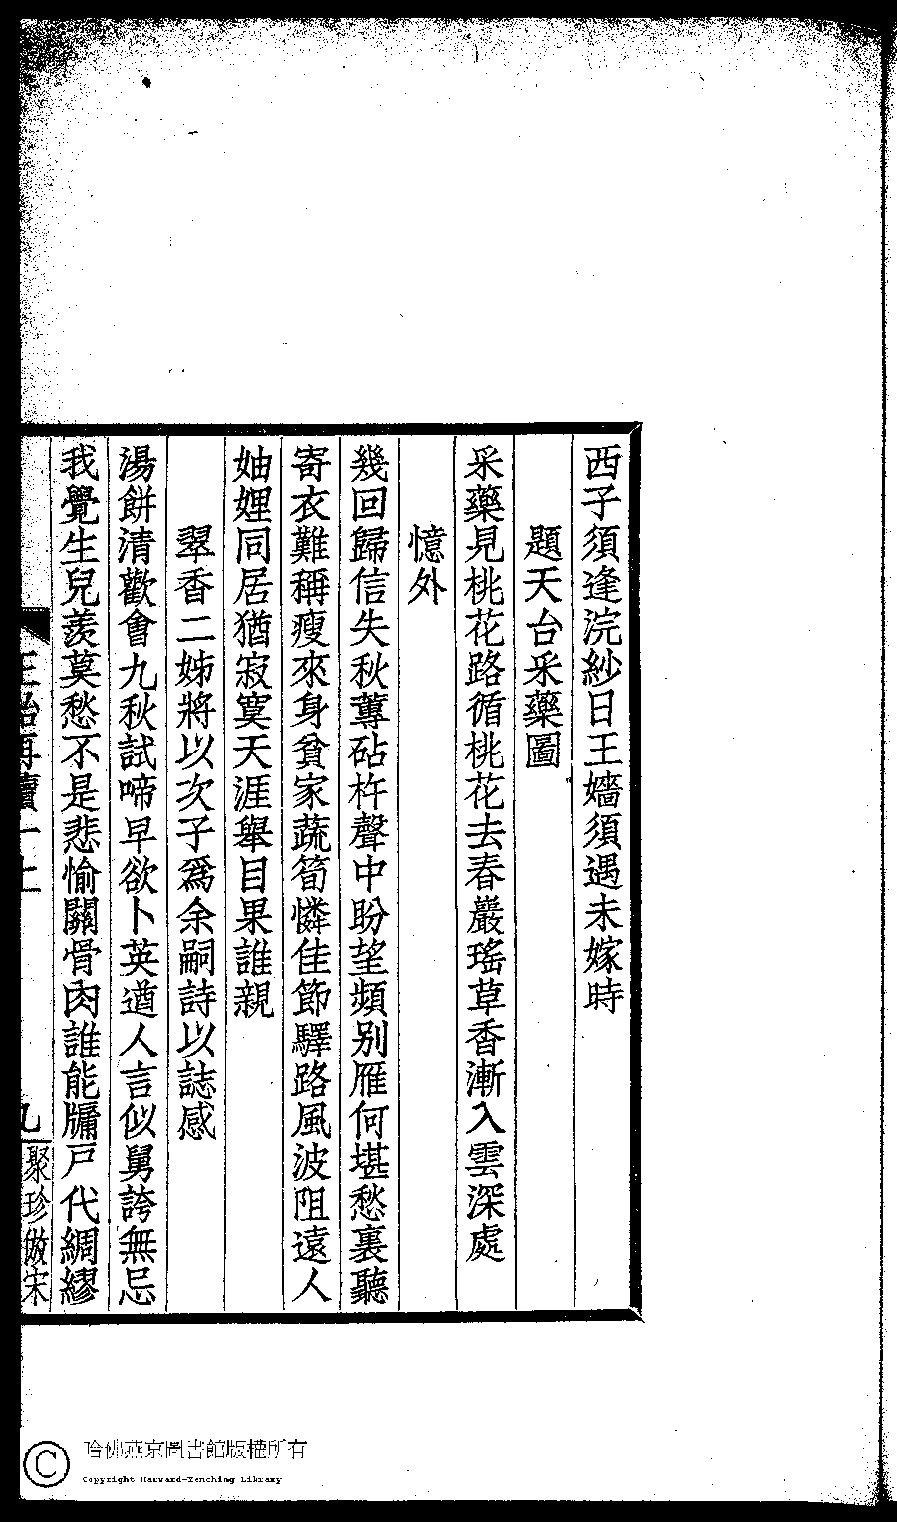 西子須逢浣紗日王嬙須遇未嫁時
題天台采藥圖
采藥見桃花路循桃花去春巖瑤草香漸入雲深處
憶外
幾回歸信失秋蓴砧杵聲中盼望頻别雁何堪愁裏聽
寄衣難稱瘦來身貧家蔬筍憐佳節驛路風波阻遠人
妯娌同居猶寂寞天涯舉目果誰親
翠香二姊將以次子爲余嗣詩以誌感
湯餅清歡會九秋試啼早欲卜英遒人言似舅誇無忌
我覺生兒羨莫愁不是悲愉關骨肉誰能牖戶代綢繆
再續
九
聚珍倣宋
哈佛燕京圖書館版權所有
Copyright Harvard-Yenching Library